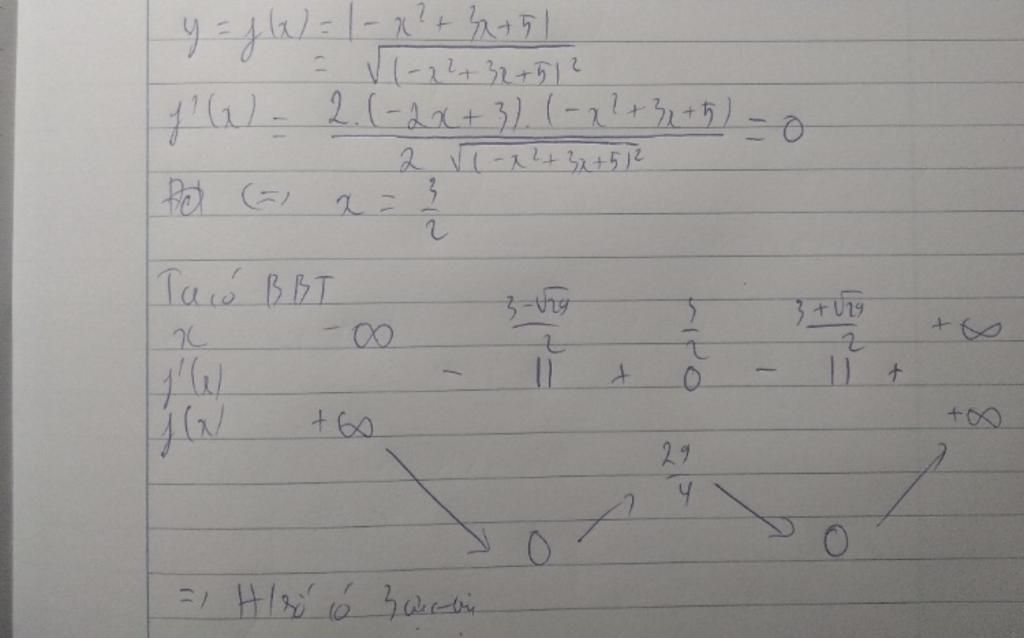 y = f(x) = |-x² + 3x + 5|
= √(-x² + 3x + 5)²
f'(x) = 2.(-2x + 3).(-x² + 3x + 5) / 2√(-x² + 3x + 5)² = 0
(=) x = 3/2
Ta có BBT
x -∞ (3-√29)/2 3/2 (3+√29)/2 +∞
f'(x) - || + 0 - || +
f(x) +∞ 29/4 +∞
0 0
=) H/số có 3 cực trị